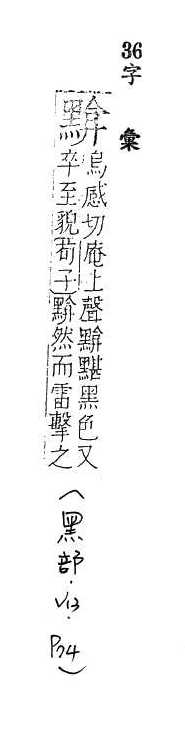 36字 彙
黭
烏感切庵上聲黭黮黑色又
卒至貌荀子黭然而雷擊之
(黑部·V13·P74)